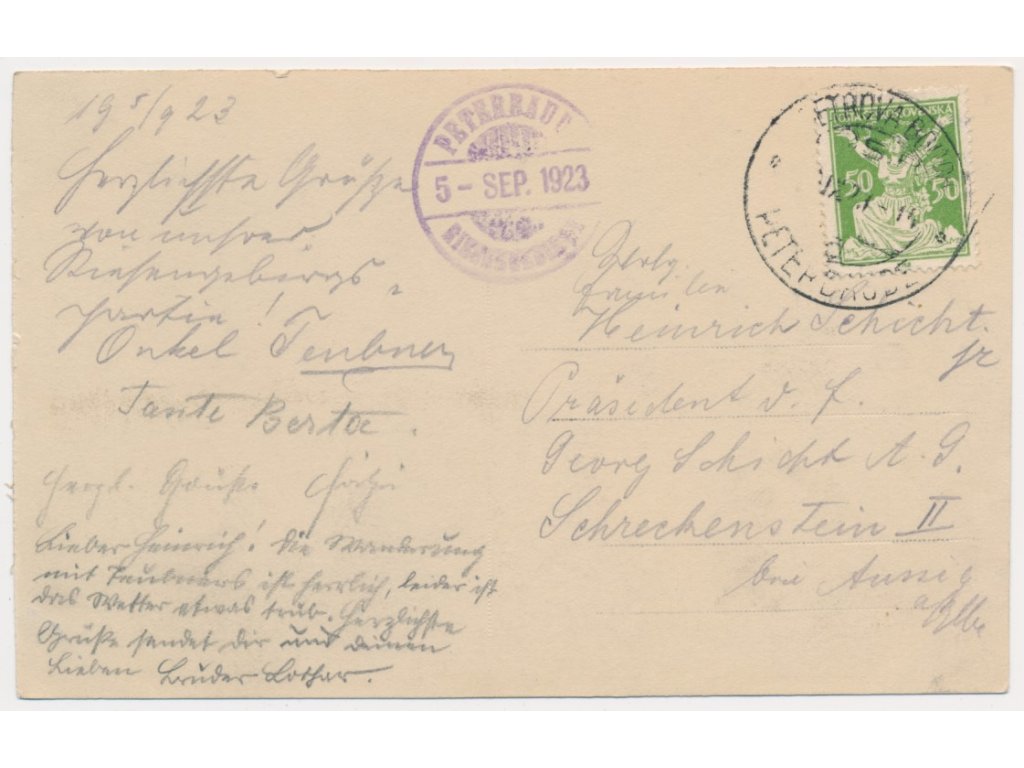 19 5/9 23
Herzlichste Grüße
von unsrer
Riesengebirgs-
partie!
Onkel Teubner
Tante Berta.
Herzl. Grüße
Lieber Heinrich! Die Wanderung
mit Teubners ist herrlich, leider ist
das Wetter etwas trüb. Herzlichste
Grüße sendet Dir und deinen
Lieben Bruder Lothar.
PETERBAUDE
5 - SEP. 1923
RIESENGEBIRGE
PETROVA BOUDA
PETERBAUDE
50 50
Familien
Heinrich Schicht.
jr
Präsident d. f.
Georg Schicht A. G.
Schreckenstein II
bei Aussig
a/Elbe